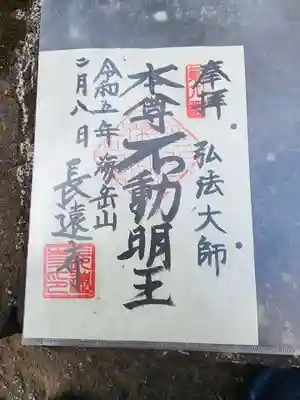 奉拝
弘法大師
本尊不動明王
令和五年 海岳山
二月八日
長遠寺